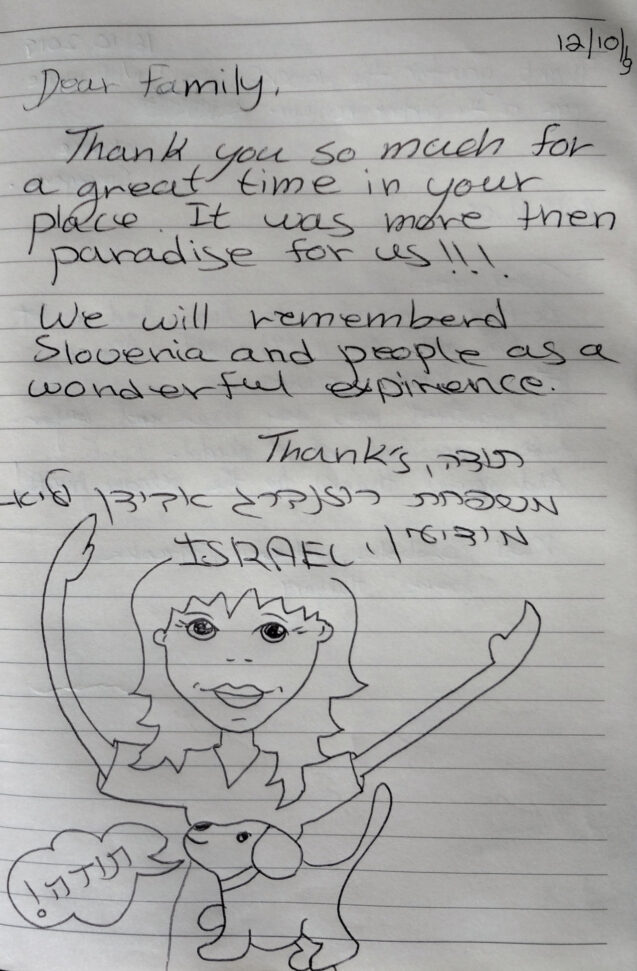 12/10/19
Dear Family,
Thank you so much for
a great time in your
place. It was more then
paradise for us!!!!
We will rememberd
Slovenia and people as a
wonderful expirience.
Thank's, תודה
משפחת רוזנברג אבידן
מודיעין, ISRAEL
תודה!